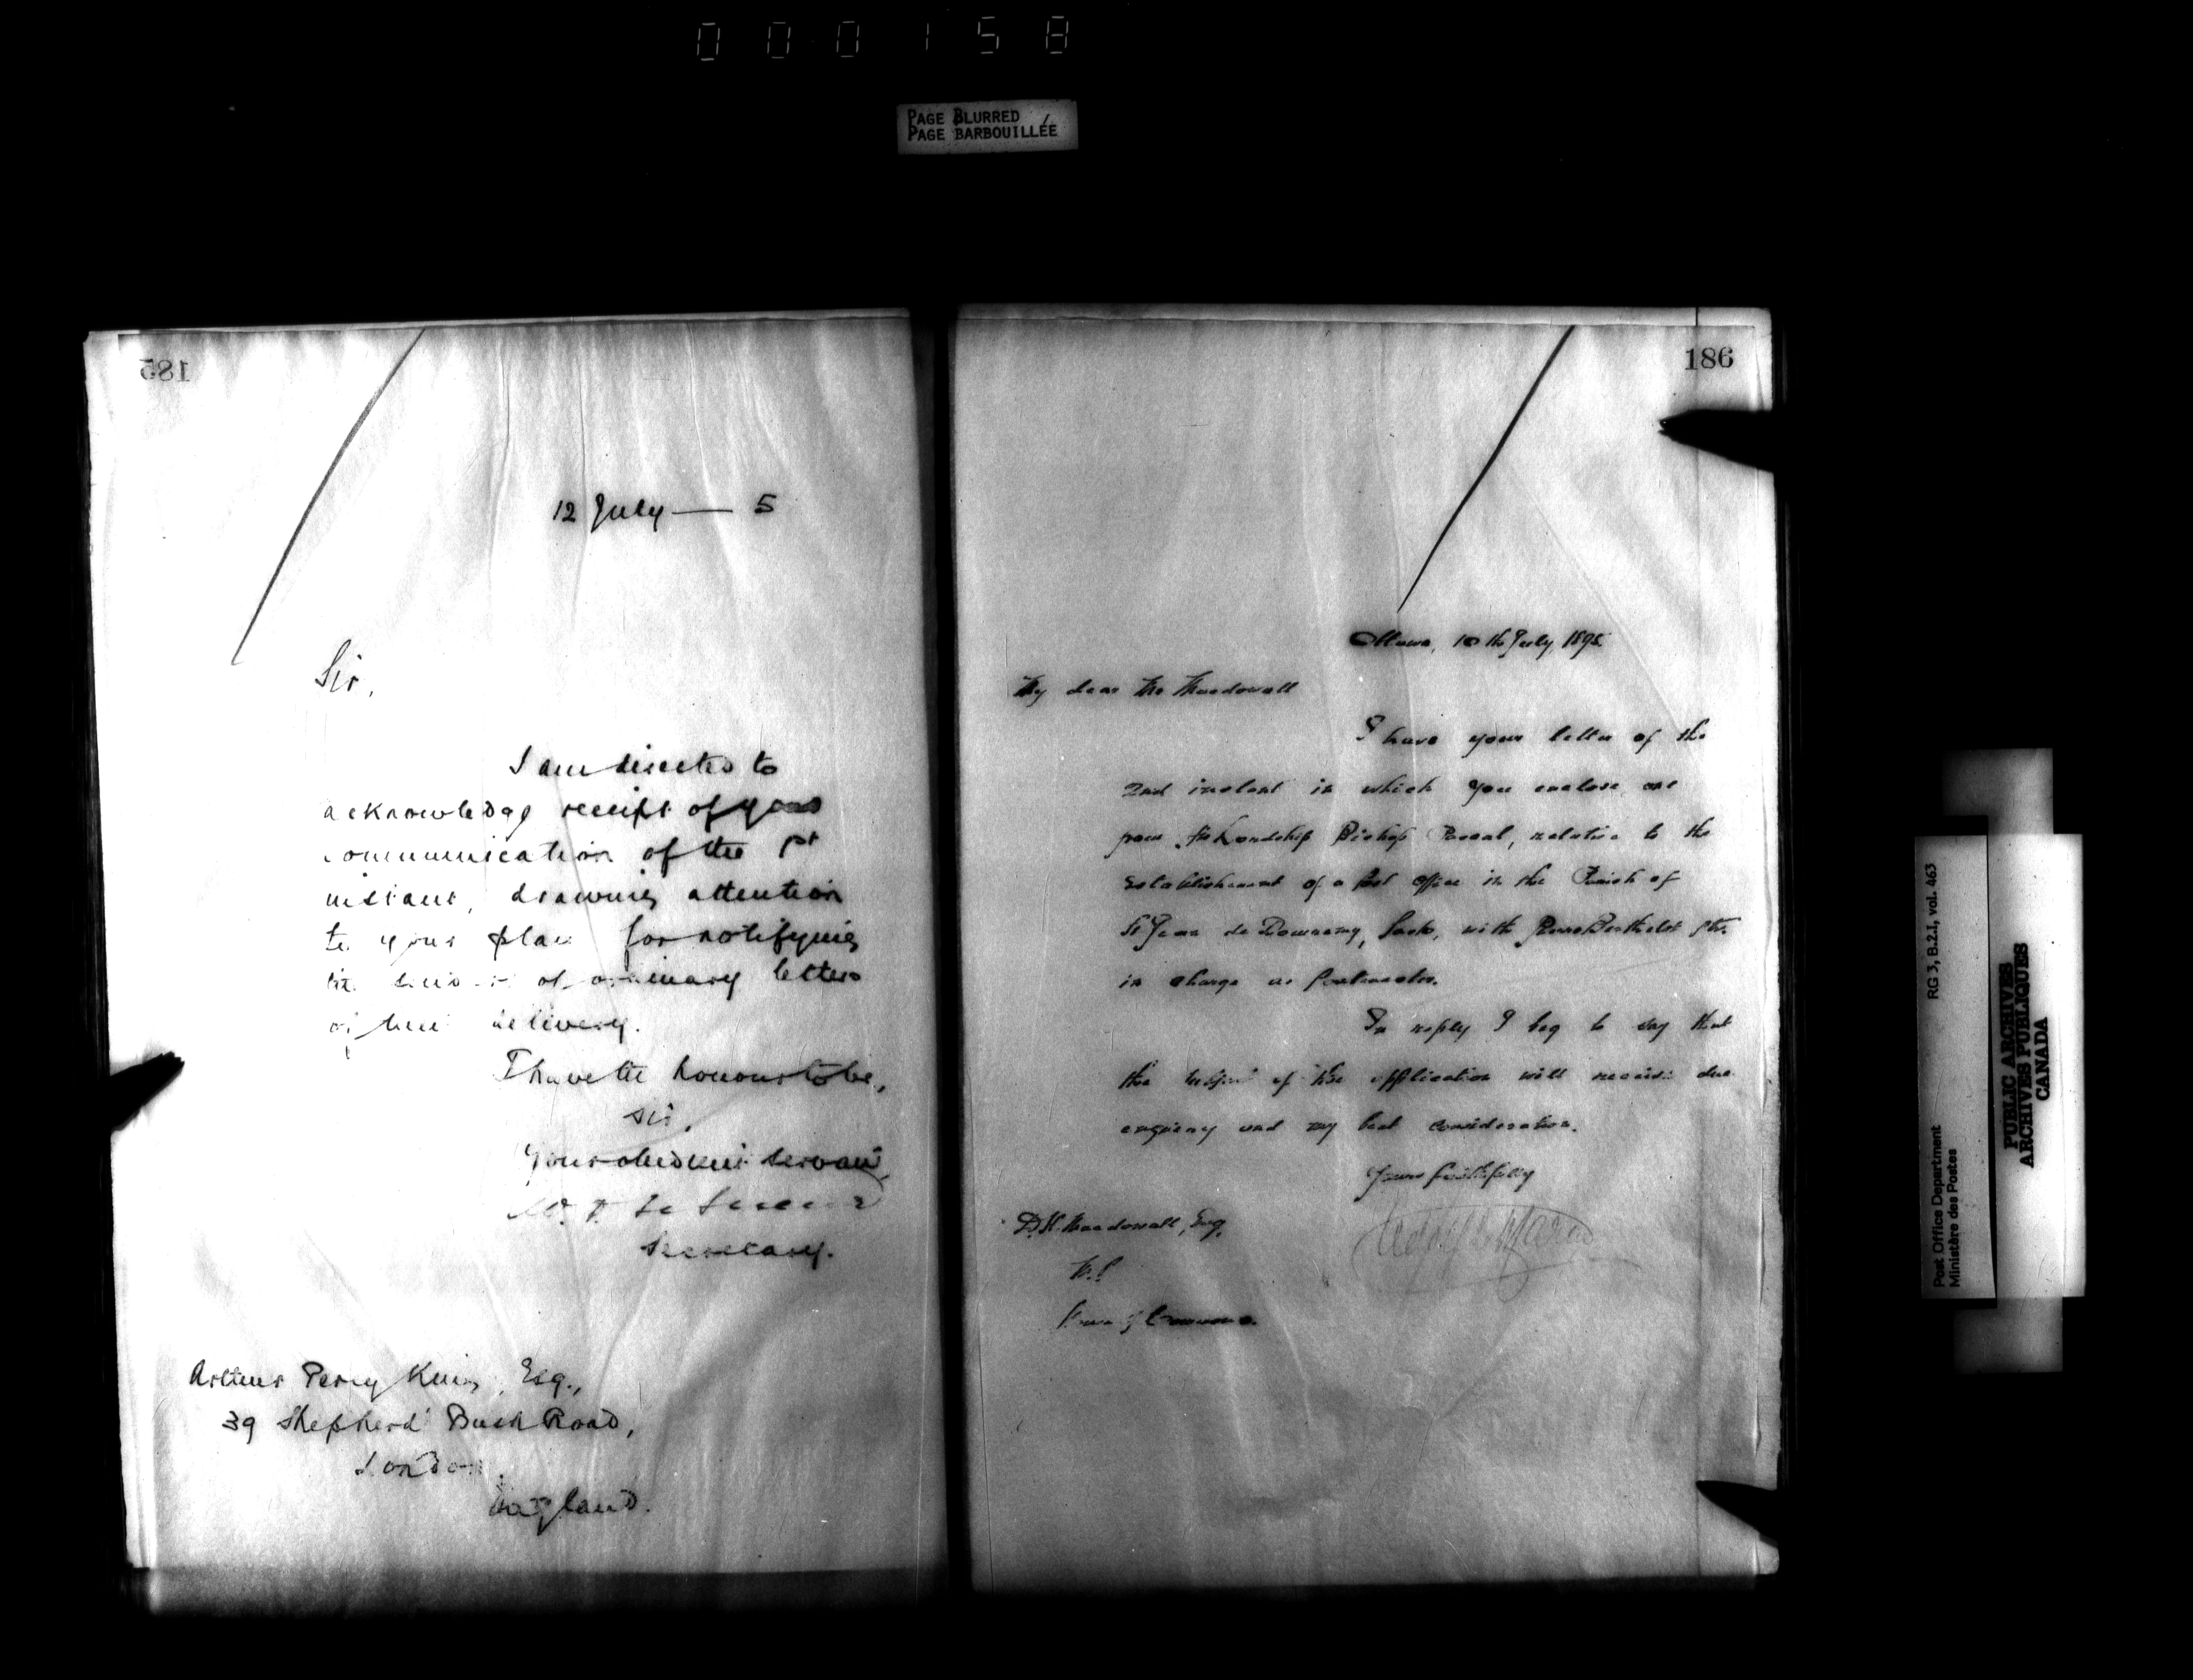 000158
PAGE BLURRED
PAGE BARBOUILLÉE
185
12 July — 5
Sir,
I am directed to
acknowledge receipt of your
communication of the 1st
instant, drawing attention
to your plan for notifying
the senders of ordinary letters
of their delivery.
I have the honour to be,
Sir,
Your obedient servant,
Secretary.
Arthur Percy King, Esq.,
39 Shepherd's Bush Road,
London,
England.
186
Ottawa, 10th July, 1895
My dear Mr Macdowall
I have your letter of the
2nd instant in which you enclose one
from His Lordship Bishop Pascal, relative to the
establishment of a Post Office in the Parish of
St Jean de Domremy, Sask, with Pierre Berthelot Ptr.
in charge as Postmaster.
In reply I beg to say that
the subject of the application will receive due
enquiry and my best consideration.
Yours faithfully
D.H. Macdowall, Esq.
M.P.
House of Commons.
Post Office Department
Ministère des Postes
RG 3, B.2.I, vol. 463
PUBLIC ARCHIVES
ARCHIVES PUBLIQUES
CANADA